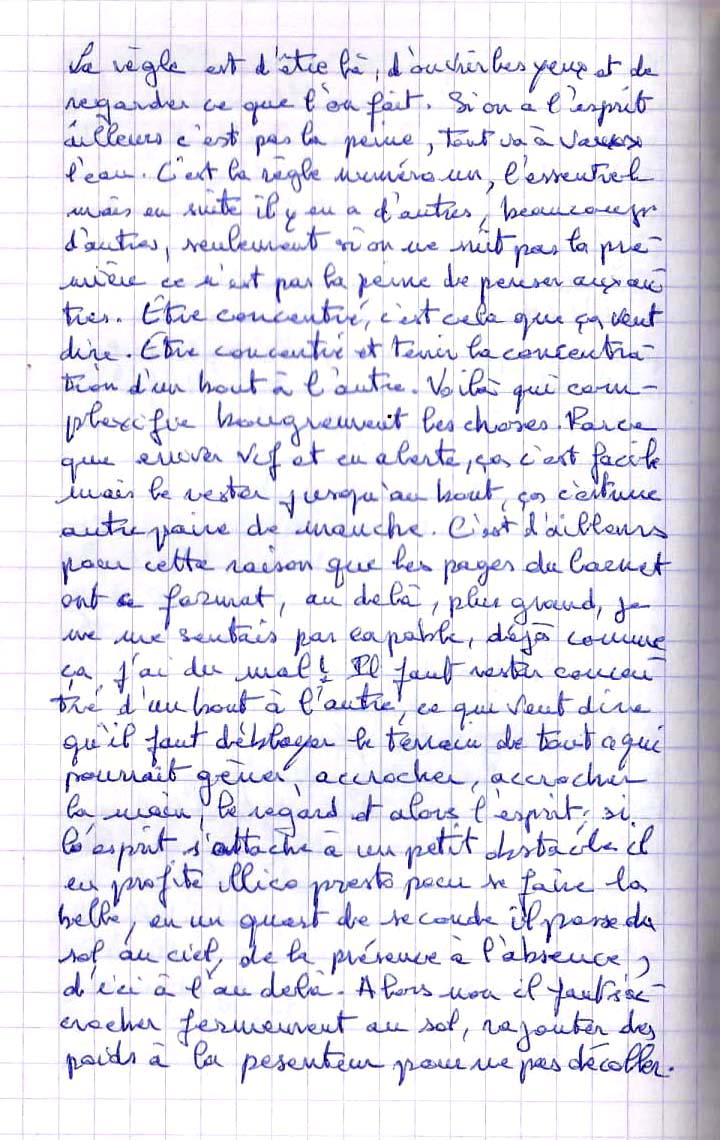 La règle est d'être là, d'ouvrir les yeux et de
regarder ce que l'on fait. Si on a l'esprit
ailleurs c'est pas la peine, tout va à vau
l'eau. C'est la règle numéro un, l'essentiel
mais en suite il y en a d'autres, beaucoup
d'autres, seulement si on ne suit pas la pre-
mière ce n'est pas la peine de penser aux au-
tres. Être concentré, c'est cela que ça veut
dire. Être concentré et tenir la concentra-
tion d'un bout à l'autre. Voilà qui com-
plexifie bougrement les choses. Parce
que arriver vif et en alerte, ça c'est facile
mais le rester jusqu'au bout, ça c'est une
autre paire de manche. C'est d'ailleurs
pour cette raison que les pages du carnet
ont ce format, au delà, plus grand, je
ne me sentais pas capable, déjà comme
ça, j'ai du mal ! Il faut rester concen-
tré d'un bout à l'autre, ce qui veut dire
qu'il faut déblayer le terrain de tout ce qui
pourrait gêner, accrocher, accrocher
la main, le regard et alors l'esprit ; si
l'esprit s'attache à un petit obstacle il
en profite illico presto pour se faire la
belle, en un quart de seconde il passe du
sol au ciel, de la présence à l'absence,
d'ici à l'au delà. Alors non il faut s'ac-
crocher fermement au sol, rajouter des
poids à la pesanteur pour ne pas décoller.